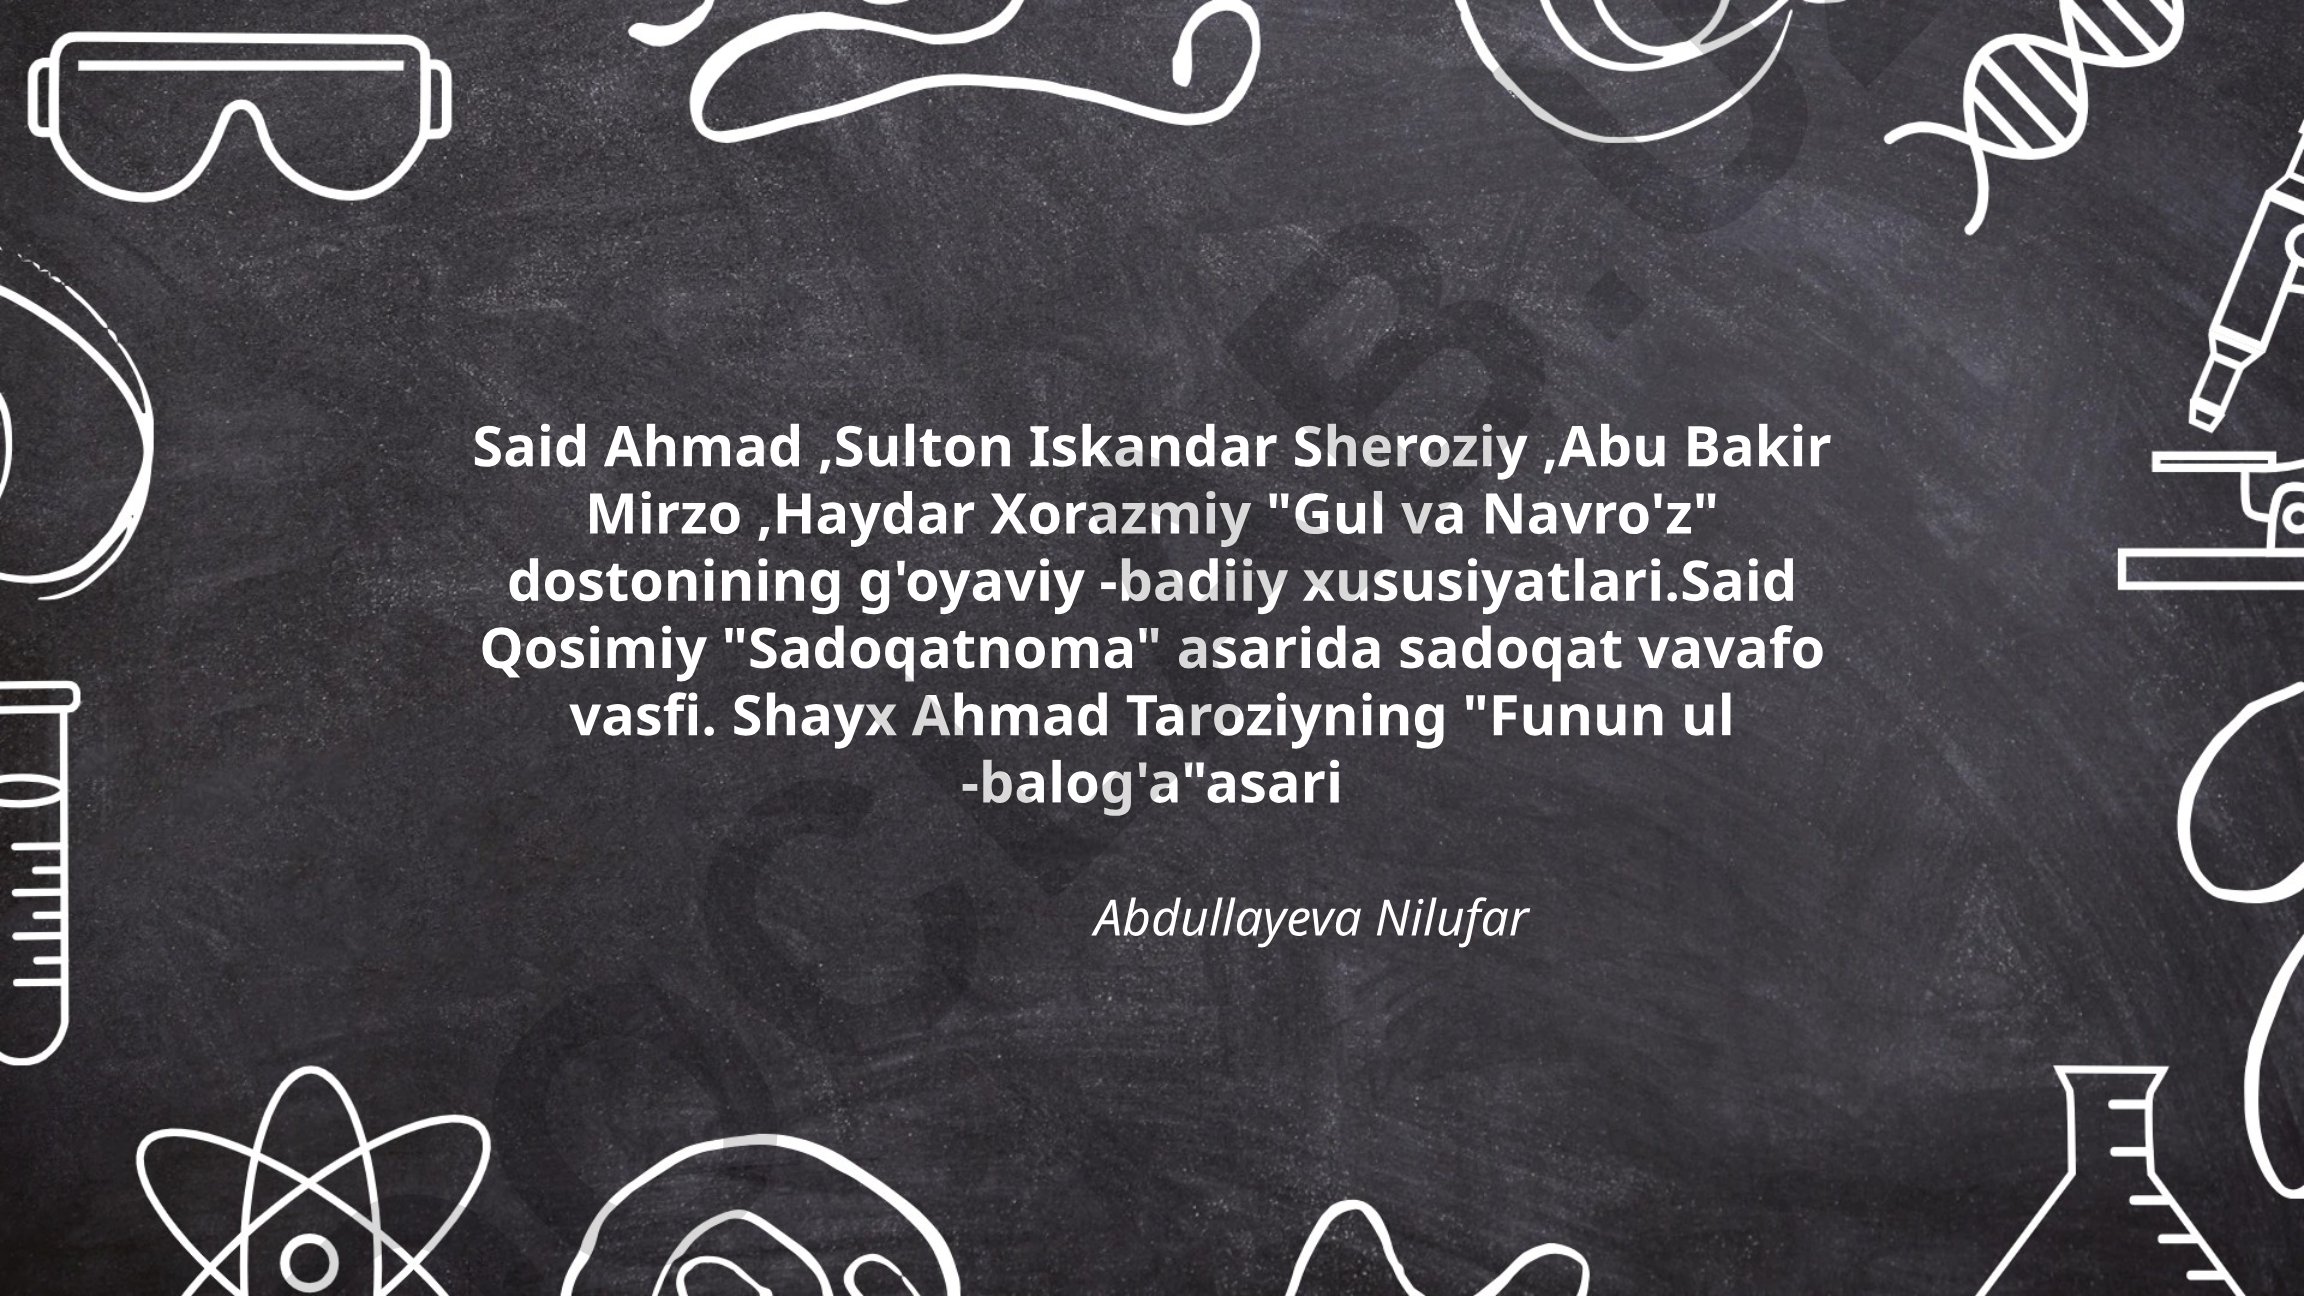 Said Ahmad ,Sulton Iskandar Sheroziy ,Abu Bakir
Mirzo ,Haydar Xorazmiy "Gul va Navro'z"
dostonining g'oyaviy -badiiy xususiyatlari.Said
Qosimiy "Sadoqatnoma" asarida sadoqat vavafo
vasfi. Shayx Ahmad Taroziyning "Funun ul
-balog'a"asari
Abdullayeva Nilufar